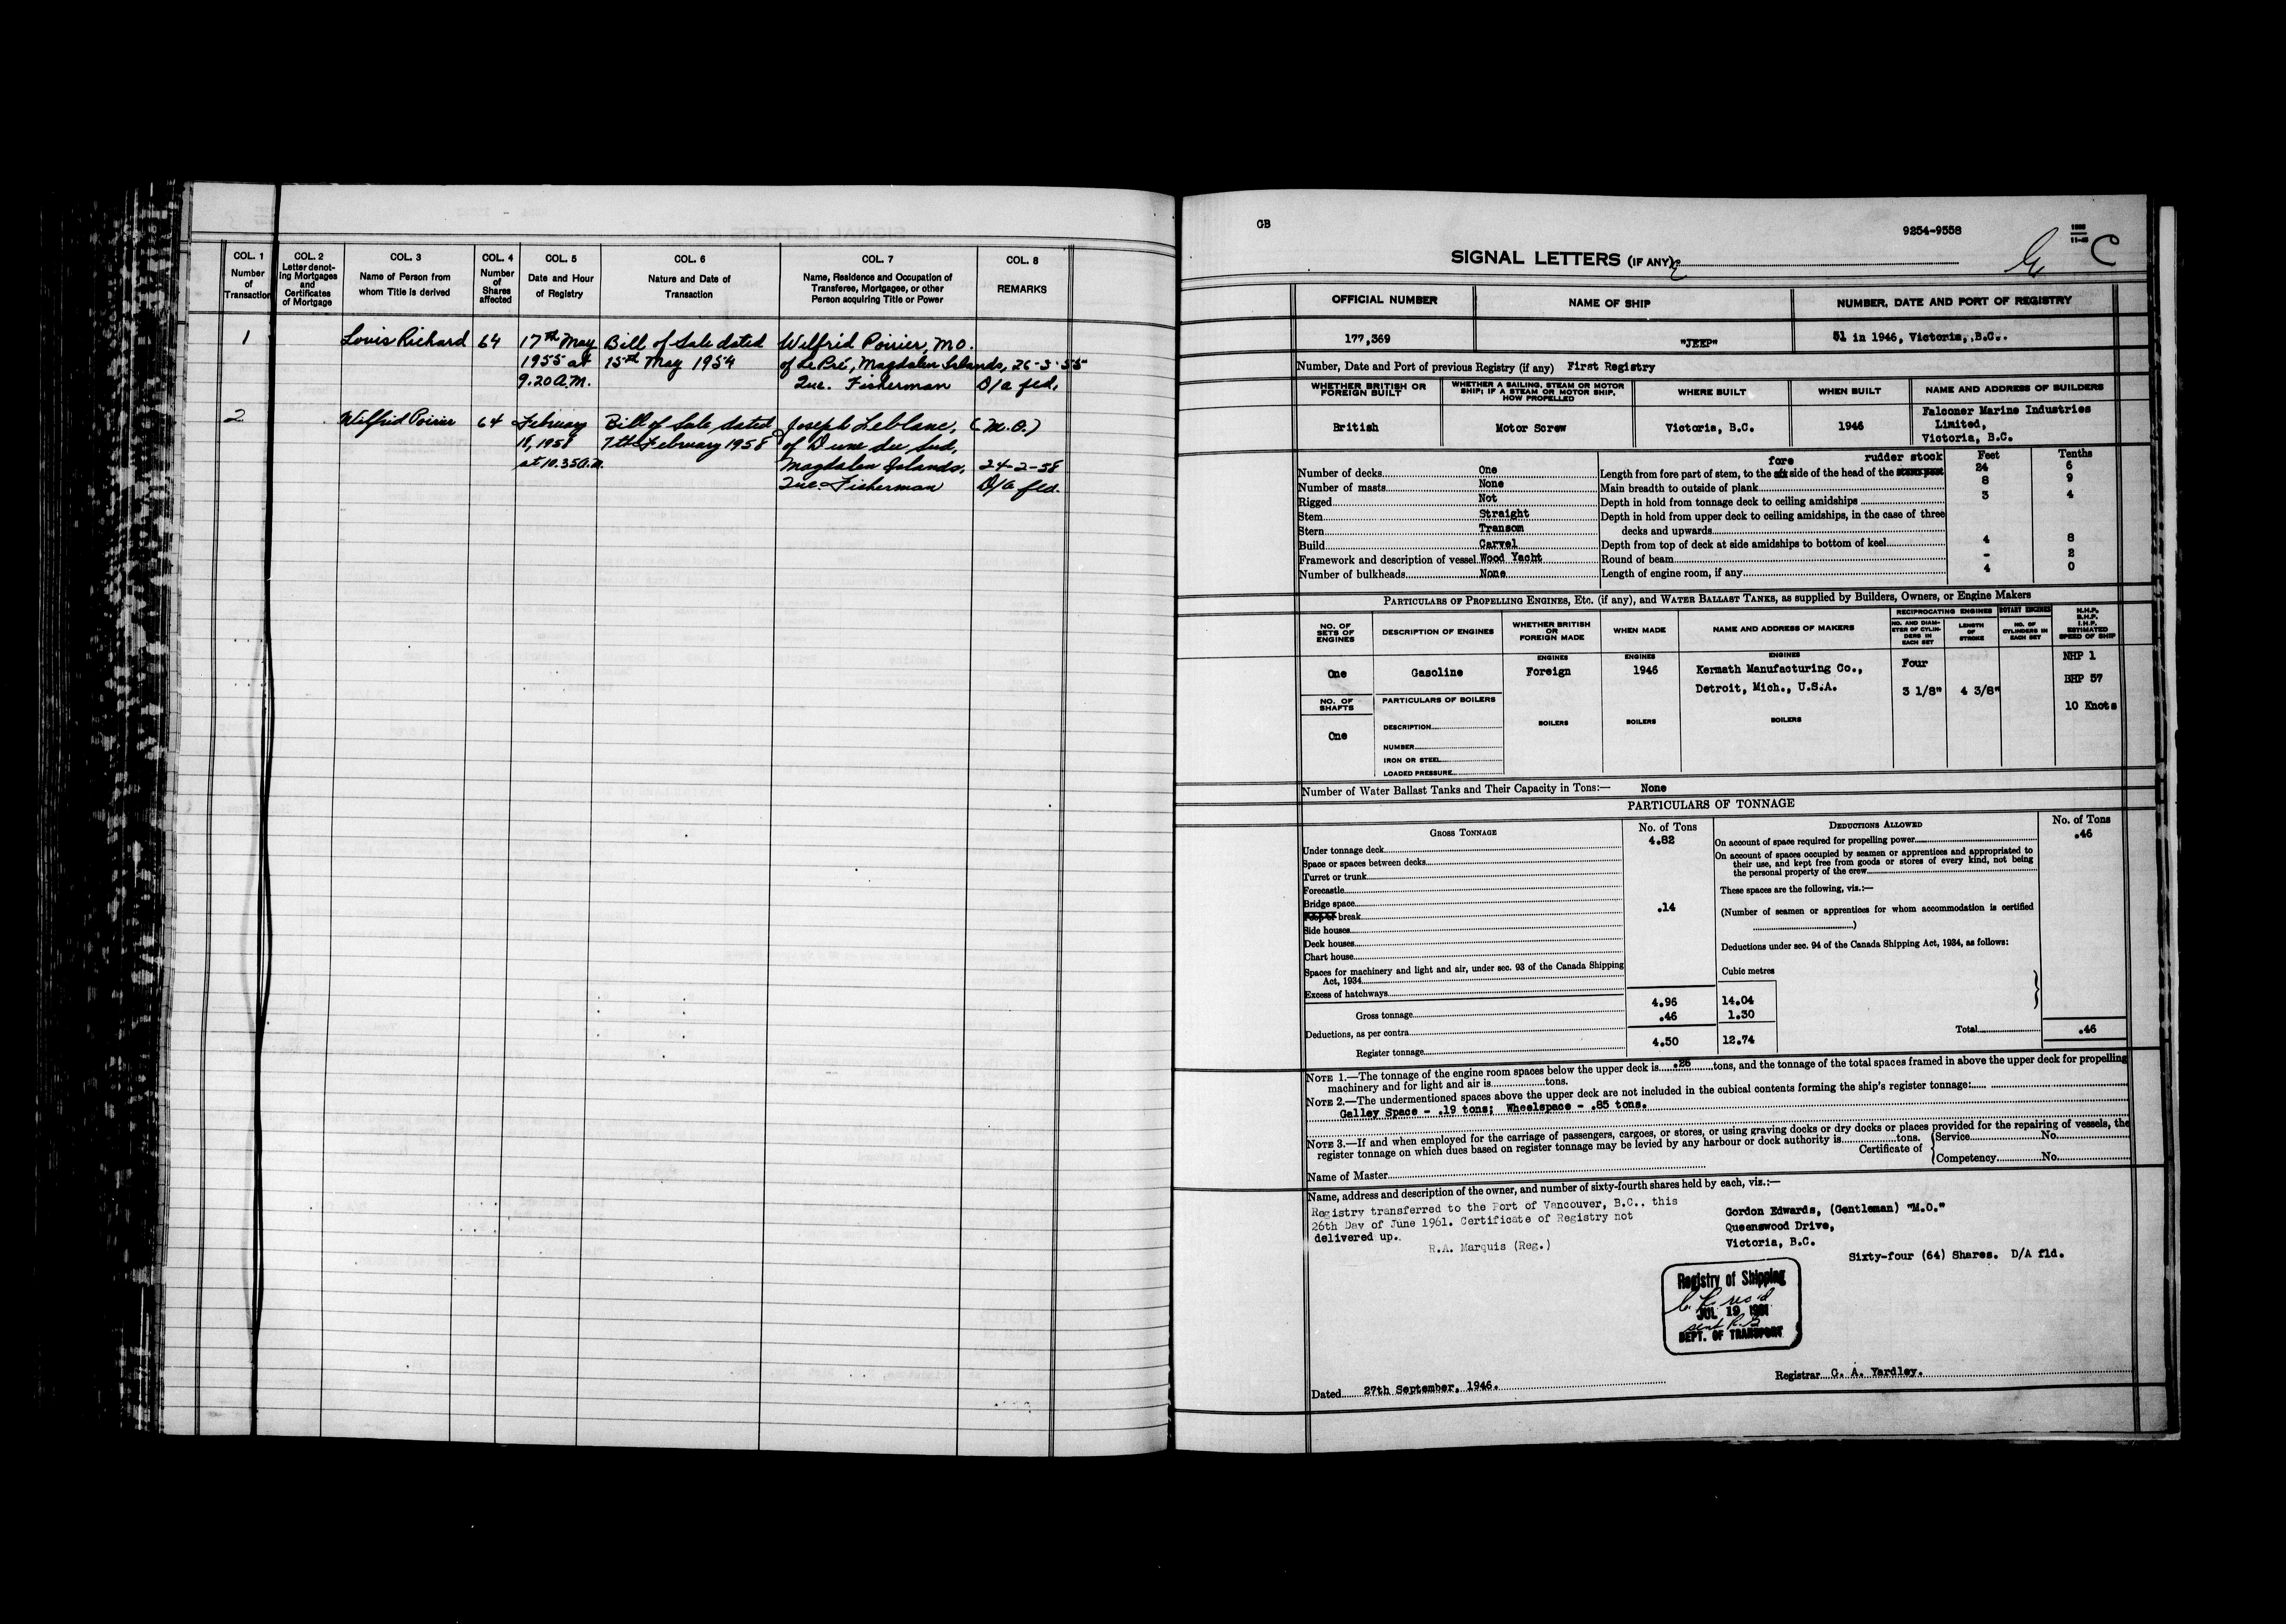 COL. 1
Number
of
Transaction
COL. 2
Letter denot-
ing Mortgages
and
Certificates
of Mortgage
COL. 3
Name of Person from
whom Title is derived
COL. 4
Number
of
Shares
affected
COL. 5
Date and Hour
of Registry
COL. 6
Nature and Date of
Transaction
COL. 7
Name, Residence and Occupation of
Transferee, Mortgagee, or other
Person acquiring Title or Power
COL. 8
REMARKS
1 Louis Richard 64 17th May Bill of Sale dated Wilfrid Poirier, M.O.
1955 at 15th May 1954 of Le Pré, Magdalen Islands, 26-5-55
9.20 A.M. Que. Fisherman D/a fld.
2 Wilfrid Poirier 64 February Bill of Sale dated Joseph Leblanc, (M.O.)
18, 1958 7th February 1958 of Dune du Sud,
at 10.35 a.m. Magdalen Islands, 24-2-58
Que. Fisherman D/a fld.
GB
9254-9558
C
SIGNAL LETTERS (IF ANY)
OFFICIAL NUMBER NAME OF SHIP NUMBER, DATE AND PORT OF REGISTRY
177,369 "JEEP" 51 in 1946, Victoria, B.C.
Number, Date and Port of previous Registry (if any) First Registry
WHETHER BRITISH OR
FOREIGN BUILT
WHETHER A SAILING, STEAM OR MOTOR
SHIP; IF A STEAM OR MOTOR SHIP,
HOW PROPELLED
WHERE BUILT
WHEN BUILT
NAME AND ADDRESS OF BUILDERS
British Motor Screw Victoria, B.C. 1946
Falconer Marine Industries
Limited,
Victoria, B.C.
Number of decks One
Number of masts None
Rigged Not
Stem Straight
Stern Transom
Build Carvel
Framework and description of vessel Wood Yacht
Number of bulkheads None
fore rudder stock Feet Tenths
Length from fore part of stem, to the aft side of the head of the stern post 24 6
Main breadth to outside of plank 8 9
Depth in hold from tonnage deck to ceiling amidships 3 4
Depth in hold from upper deck to ceiling amidships, in the case of three
decks and upwards
Depth from top of deck at side amidships to bottom of keel 4 8
Round of beam - 2
Length of engine room, if any 4 0
PARTICULARS OF PROPELLING ENGINES, ETC. (if any), and WATER BALLAST TANKS, as supplied by Builders, Owners, or Engine Makers
NO. OF
SETS OF
ENGINES
DESCRIPTION OF ENGINES
WHETHER BRITISH
OR
FOREIGN MADE
WHEN MADE
NAME AND ADDRESS OF MAKERS
RECIPROCATING ENGINES
NO. AND DIAM-
ETER OF CYLIN-
DERS IN
EACH SET
LENGTH
OF
STROKE
ROTARY ENGINES
NO. OF
CYLINDERS IN
EACH SET
N.H.P.
B.H.P.
I.H.P.
ESTIMATED
SPEED OF SHIP
ENGINES ENGINES ENGINES
One Gasoline Foreign 1946 Kermath Manufacturing Co., Four NHP 1
Detroit, Mich., U.S.A. 3 1/8" 4 3/8" BHP 57
10 Knots
NO. OF
SHAFTS
One
PARTICULARS OF BOILERS
BOILERS BOILERS BOILERS
DESCRIPTION
NUMBER
IRON OR STEEL
LOADED PRESSURE
Number of Water Ballast Tanks and Their Capacity in Tons:— None
PARTICULARS OF TONNAGE
GROSS TONNAGE No. of Tons
Under tonnage deck 4.82
Space or spaces between decks
Turret or trunk
Forecastle
Bridge space
Poop or break .14
Side houses
Deck houses
Chart house
Spaces for machinery and light and air, under sec. 93 of the Canada Shipping
Act, 1934
Excess of hatchways
Cubic metres
Gross tonnage 4.96 14.04
Deductions, as per contra .46 1.30
Register tonnage 4.50 12.74
DEDUCTIONS ALLOWED No. of Tons
On account of space required for propelling power .46
On account of spaces occupied by seamen or apprentices and appropriated to
their use, and kept free from goods or stores of every kind, not being
the personal property of the crew
These spaces are the following, viz.:—
(Number of seamen or apprentices for whom accommodation is certified
)
Deductions under sec. 94 of the Canada Shipping Act, 1934, as follows:
Total .46
NOTE 1.—The tonnage of the engine room spaces below the upper deck is .26 tons, and the tonnage of the total spaces framed in above the upper deck for propelling
machinery and for light and air is tons.
NOTE 2.—The undermentioned spaces above the upper deck are not included in the cubical contents forming the ship's register tonnage:
Galley Space - .19 tons; Wheelspace - .85 tons.
NOTE 3.—If and when employed for the carriage of passengers, cargoes, or stores, or using graving docks or dry docks or places provided for the repairing of vessels, the
register tonnage on which dues based on register tonnage may be levied by any harbour or dock authority is tons.
Certificate of
Service No.
Competency No.
Name of Master
Name, address and description of the owner, and number of sixty-fourth shares held by each, viz.:—
Registry transferred to the Port of Vancouver, B.C., this
26th Day of June 1961. Certificate of Registry not
delivered up.
R.A. Marquis (Reg.)
Gordon Edwards, (Gentleman) "M.O."
Queenswood Drive,
Victoria, B.C.
Sixty-four (64) Shares. D/A fld.
Registry of Shipping
JUL 19 1961
DEPT. OF TRANSPORT
Dated 27th September, 1946.
Registrar C. A. Yardley.